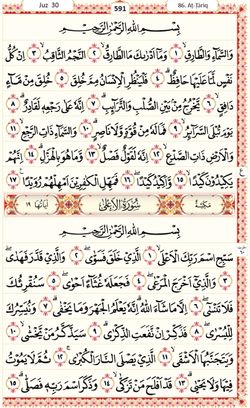 Juz 30
591
86. At-Tāriq
بِسْمِ اللّٰهِ الرَّحْمٰنِ الرَّحِيْمِ
وَالسَّمَآءِ وَالطَّارِقِ ۙ ١ وَمَآ اَدْرٰىكَ مَا الطَّارِقُ ۙ ٢ النَّجْمُ الثَّاقِبُ ۙ ٣ اِنْ كُلُّ
نَفْسٍ لَّمَّا عَلَيْهَا حَافِظٌ ۗ ٤ فَلْيَنْظُرِ الْاِنْسَانُ مِمَّ خُلِقَ ۗ ٥ خُلِقَ مِنْ مَّآءٍ
دَافِقٍ ۙ ٦ يَّخْرُجُ مِنْۢ بَيْنِ الصُّلْبِ وَالتَّرَآىِٕبِ ۗ ٧ اِنَّهٗ عَلٰى رَجْعِهٖ لَقَادِرٌ ۗ ٨
يَوْمَ تُبْلَى السَّرَآىِٕرُ ۙ ٩ فَمَا لَهٗ مِنْ قُوَّةٍ وَّلَا نَاصِرٍ ۗ ١٠ وَالسَّمَآءِ ذَاتِ الرَّجْعِ ۙ ١١
وَالْاَرْضِ ذَاتِ الصَّدْعِ ۙ ١٢ اِنَّهٗ لَقَوْلٌ فَصْلٌ ۙ ١٣ وَّمَا هُوَ بِالْهَزْلِ ۗ ١٤ اِنَّهُمْ
يَكِيْدُوْنَ كَيْدًا ۙ ١٥ وَّاَكِيْدُ كَيْدًا ۖ ١٦ فَمَهِّلِ الْكٰفِرِيْنَ اَمْهِلْهُمْ رُوَيْدًا ࣖ ١٧
مكيّة
سُوْرَةُ الْاَعْلٰى
اٰيَاتُهَا ١٩
بِسْمِ اللّٰهِ الرَّحْمٰنِ الرَّحِيْمِ
سَبِّحِ اسْمَ رَبِّكَ الْاَعْلَى ۙ ١ الَّذِيْ خَلَقَ فَسَوّٰى ۖ ٢ وَالَّذِيْ قَدَّرَ فَهَدٰى ۖ
٣ وَالَّذِيْٓ اَخْرَجَ الْمَرْعٰى ۖ ٤ فَجَعَلَهٗ غُثَآءً اَحْوٰى ۗ ٥ سَنُقْرِئُكَ
فَلَا تَنْسٰىٓ ۙ ٦ اِلَّا مَا شَآءَ اللّٰهُ ۗ اِنَّهٗ يَعْلَمُ الْجَهْرَ وَمَا يَخْفٰى ۗ ٧ وَنُيَسِّرُكَ
لِلْيُسْرٰى ۖ ٨ فَذَكِّرْ اِنْ نَّفَعَتِ الذِّكْرٰى ۗ ٩ سَيَذَّكَّرُ مَنْ يَّخْشٰى ۙ ١٠
وَيَتَجَنَّبُهَا الْاَشْقَى ۙ ١١ الَّذِيْ يَصْلَى النَّارَ الْكُبْرٰى ۚ ١٢ ثُمَّ لَا يَمُوْتُ
فِيْهَا وَلَا يَحْيٰى ۗ ١٣ قَدْ اَفْلَحَ مَنْ تَزَكّٰى ۙ ١٤ وَذَكَرَ اسْمَ رَبِّهٖ فَصَلّٰى ۗ ١٥